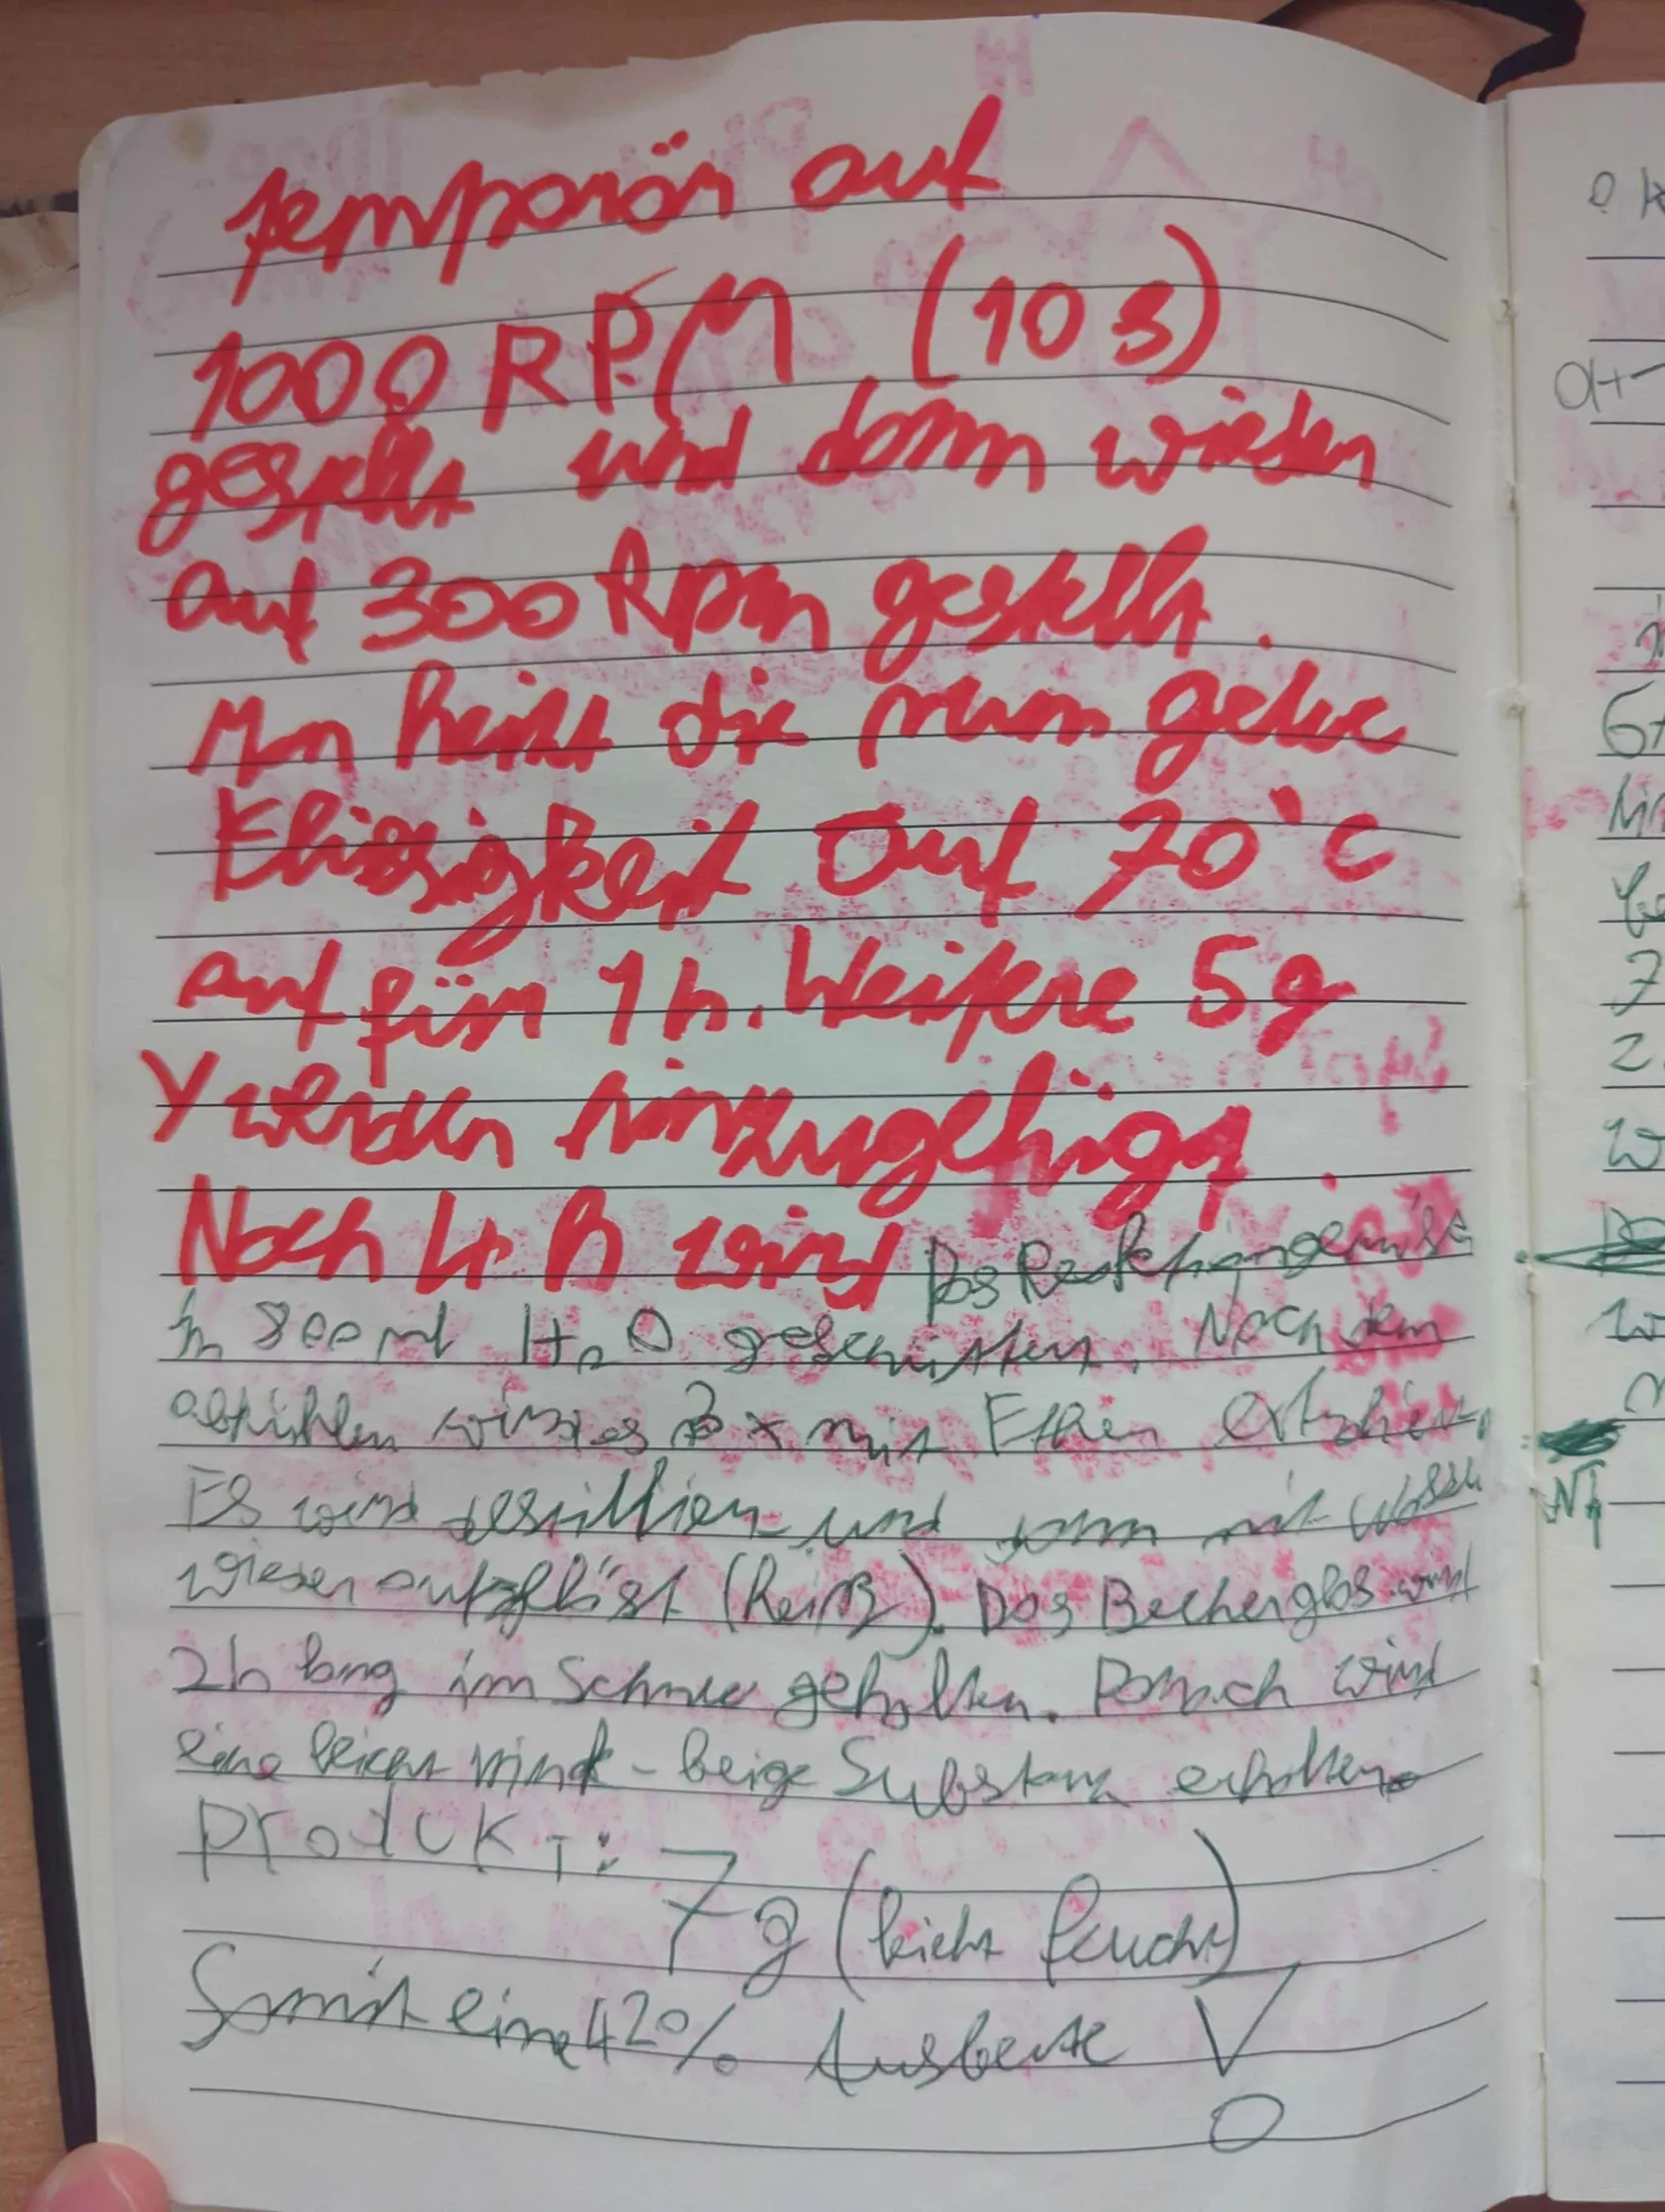 temporär auf
1000 RPM (10 s)
gestellt und dann wieder
auf 300 Rpm gestellt.
Man heizt die nun gelbe
Flüssigkeit auf 70°C
auf für 1 h. Weitere 5g
Y werden hinzugefügt.
Nach 4 h wird Das Reaktionsgemisch
in 800 ml H2O geschüttet. Nach dem
abkühlen wird es 3x mit Ether extrahiert.
Es wird destilliert und dann mit Wasser
wieder aufgelöst (heiß). Das Becherglas wird
2h lang im Schnee gehalten. Danach wird
eine leicht - beige Substanz erhalten.
Produkt: 7g (leicht feucht)
Somit eine 42% Ausbeute!
OH
NH